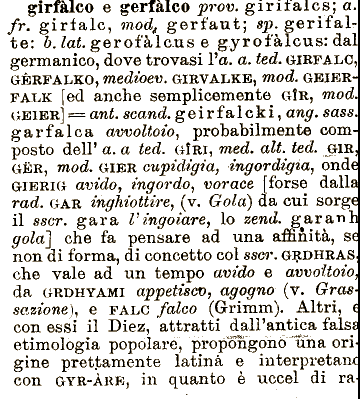 girfàlco e gerfàlco prov. girifalcs; a.
fr. girfalc, mod. gerfaut; sp. gerifal-
te: b. lat. gerofàlcus e gyrofàlcus: dal
germanico, dove trovasi l'a. a. ted. GIRFALC,
GÊRFALKO, medioev. GIRVALKE, mod. GEIER-
FALK [ed anche semplicemente GÎR, mod.
GEIER] = ant. scand. geirfalcki, ang. sass.
garfalca avvoltoio, probabilmente com-
posto dell' a. a ted. GÎRI, med. alt. ted. GIR,
GËR, mod. GIER cupidigia, ingordigia, onde
GIERIG avido, ingordo, vorace [forse dalla
rad. GAR inghiottire, (v. Gola) da cui sorge
il sscr. gara l'ingoiare, lo zend. garanh
gola] che fa pensare ad una affinità, se
non di forma, di concetto col sscr. GṚDHRAS,
che vale ad un tempo avido e avvoltoio,
da GRDHYAMI appetisco, agogno (v. Gras-
sazione), e FALC falco (Grimm). Altri, e
con essi il Diez, attratti dall'antica falsa
etimologia popolare, propóngono una ori-
gine prettamente latina e interpretano
con GYR-ÀRE, in quanto è uccel di ra-